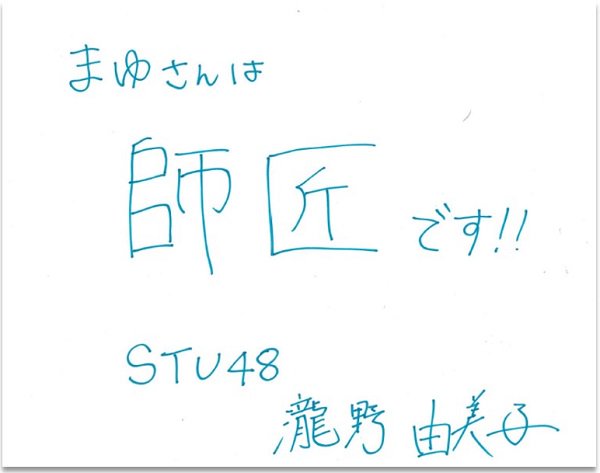 まゆさんは
師匠です!!
STU48
瀧野由美子